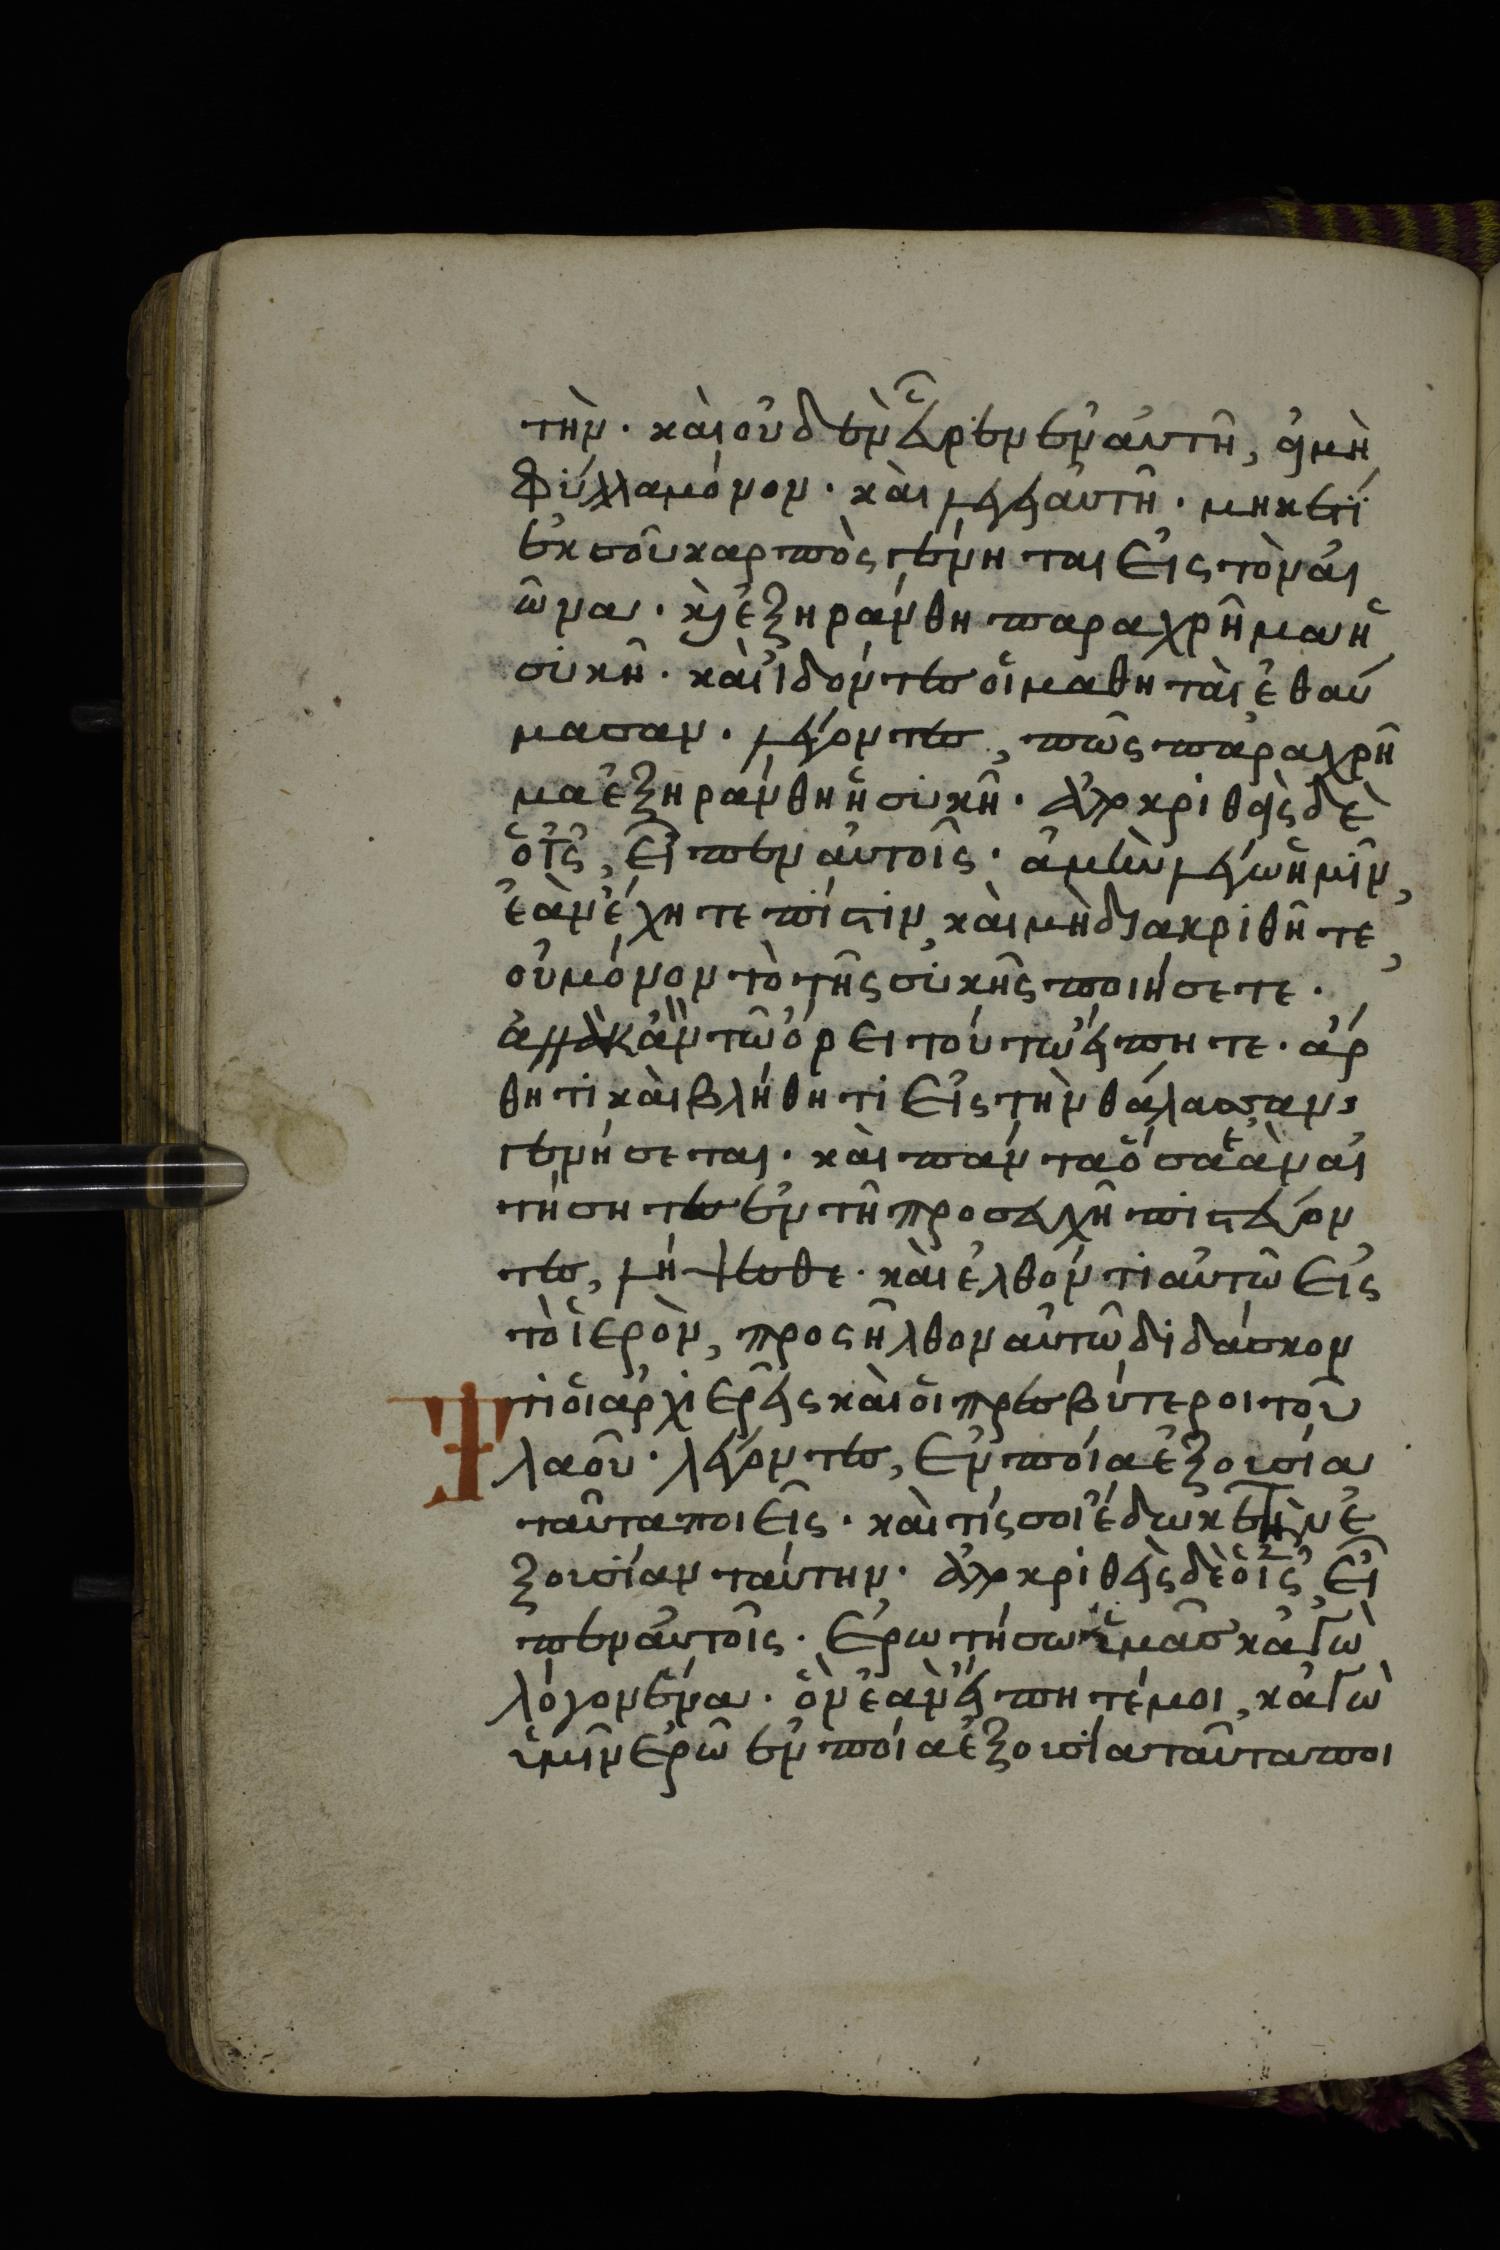 τὴν· καὶ οὐδὲν εὗρεν ἐν αὐτῆ, εἰ μὴ
φύλλα μόνον· καὶ λέγει αὐτῆ· μηκέτι
ἐκ σοῦ καρπὸς γένηται εἰς τὸν αἰ
ῶνα· κὶ ἐξηράνθη παραχρῆμα ἡ
συκῆ· καὶ ἰδόντες οἱ μαθηταὶ ἐθαύ
μασαν· λέγοντες, πῶς παραχρῆ
μα ἐξηράνθη ἡ συκῆ· ἀποκριθεὶς δὲ
ὁ ἰς, εἶπεν αὐτοῖς· ἀμὴν λέγω ἡμῖν,
ἐὰν ἔχητε πίστιν, καὶ μὴ διακριθῆτε,
οὐ μόνον τὸ τῆς συκῆς ποιήσετε·
ἀλλὰ κἂν τῶ ὄρει τούτω εἴπητε· ἄρ
θητι καὶ βλήθητι εἰς τὴν θάλασσαν,
γενήσεται· καὶ πάντα ὅσα ἐὰν αἰ
τήσητε ἐν τῆ προσευχῆ πιστεύον
τες, λήψεσθε· καὶ ἐλθόντι αὐτῶ εἰς
τὸ ἱερὸν, προσῆλθον αὐτῶ διδάσκον
τι οἱ ἀρχιερεῖς καὶ οἱ πρεσβύτεροι τοῦ
λαοῦ· λέγοντες, Ἐν ποία ἐξουσία
ταῦτα ποιεῖς· καὶ τίς σοι ἔδωκε τὴν ἐ
ξουσίαν ταύτην· ἀποκριθεὶς δὲ ὁ ἰς, εἶ
πεν αὐτοῖς· Ἐρωτήσω ὑμᾶσ κἀγὼ
λόγον ἕνα· ὃν ἐὰν εἴπητέ μοι, κἀγὼ
ὑμῖν ἐρῶ ἐν ποία ἐξουσία ταῦτα ποι